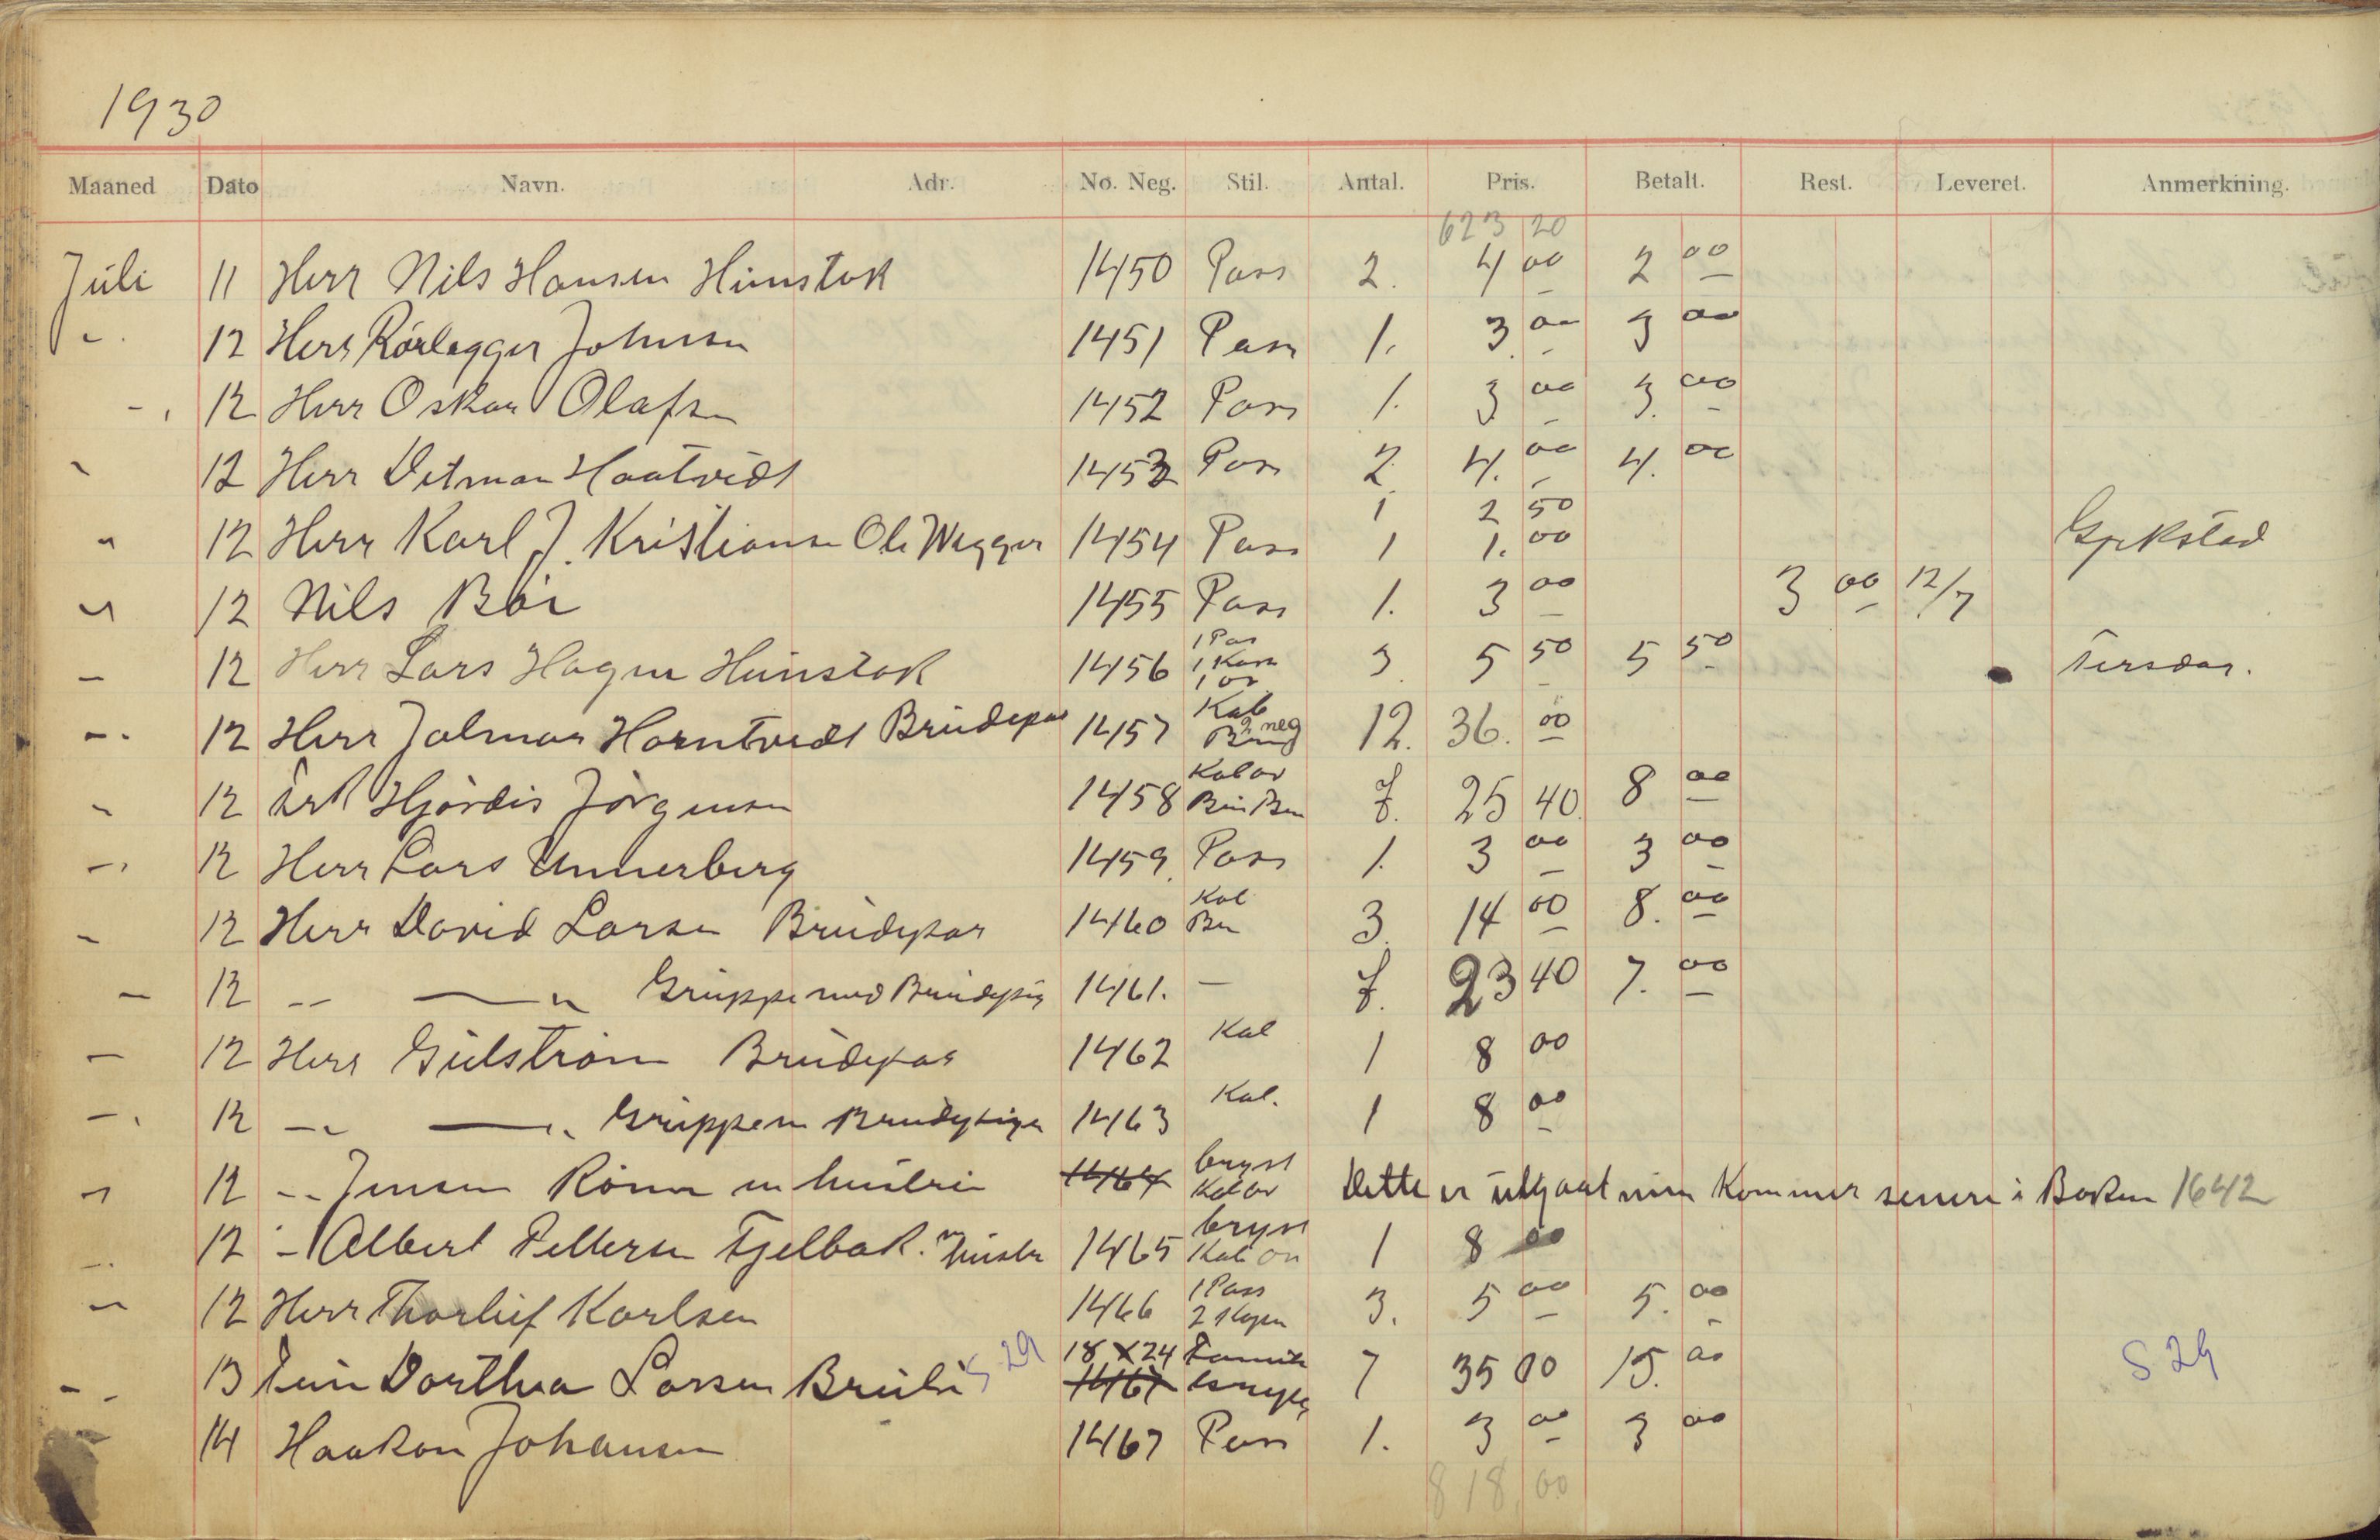 1930
Maaned Dato Navn. Adr. No. Neg. Stil. Antal. Pris. Betalt. Rest. Leveret. Anmerkning.
623 20
Juli 11 Herr Nils Hansen Himstok 1450 Pass 2. 4 00 2 00
" 12 Herr Rörlegger Johnsen 1451 Pass 1. 3 00 3 00
" 12 Herr Oskar Olafsen 1452 Pass 1. 3 00 3. 00
" 12 Herr Ditman Haatvedt 1453 Pass 2 4. 00 4. 00
1 2 50
" 12 Herr Karl J. Kristiansen Ole Wegger 1454 Pass 1 1. 00 Gjekstad
" 12 Nils Böe 1455 Pass 1. 3 00 3 00 12/7
1 Pas
" 12 Herr Lars Hagen Himstok 1456 1 Kam 3 5 50 5 50 Tirsdag.
1 or
Kab
" 12 Herr Jalmar Horntvedt Brudepar 1457 2 neg 12. 36. 00
Kab or
" 12 Frk Hjördis Jörgensen 1458 7. 25 40 8 00
" 12 Herr Lars Unnerberg 1459. Pass 1. 3 00 3 00
Kab
" 12 Herr David Larsen Brudepar 1460 Bru 3. 14 00 8. 00
" 12 " " Gruppe med Brudepig 1461. — 7. 23 40 7. 00
" 12 Herr Gulström Brudepar 1462 Kab 1 8 00
" 12 " " Gruppen Brudepiger 1463 Kab. 1 8 00
bryst
" 12 " Jensen Rönne m hustru 1464 Kab or Dette er utgaat men Kommer senere i Boken 1642
bryst
" 12 " Albert Pettersen Fjelbak. m hustr 1465 Kab or 1 8 00
1 Pass
" 12 Herr Thorlief Karlsen 1466 2 Kopen 3. 5 00 5. 00
S 29 18 X 24 Famili
" 13 Fru Dorthea Larsen Bruli 1467 7 35 00 15. 00 S 29
14 Haakon Johansen 1467 Pass 1. 3 00 3 00
818,00